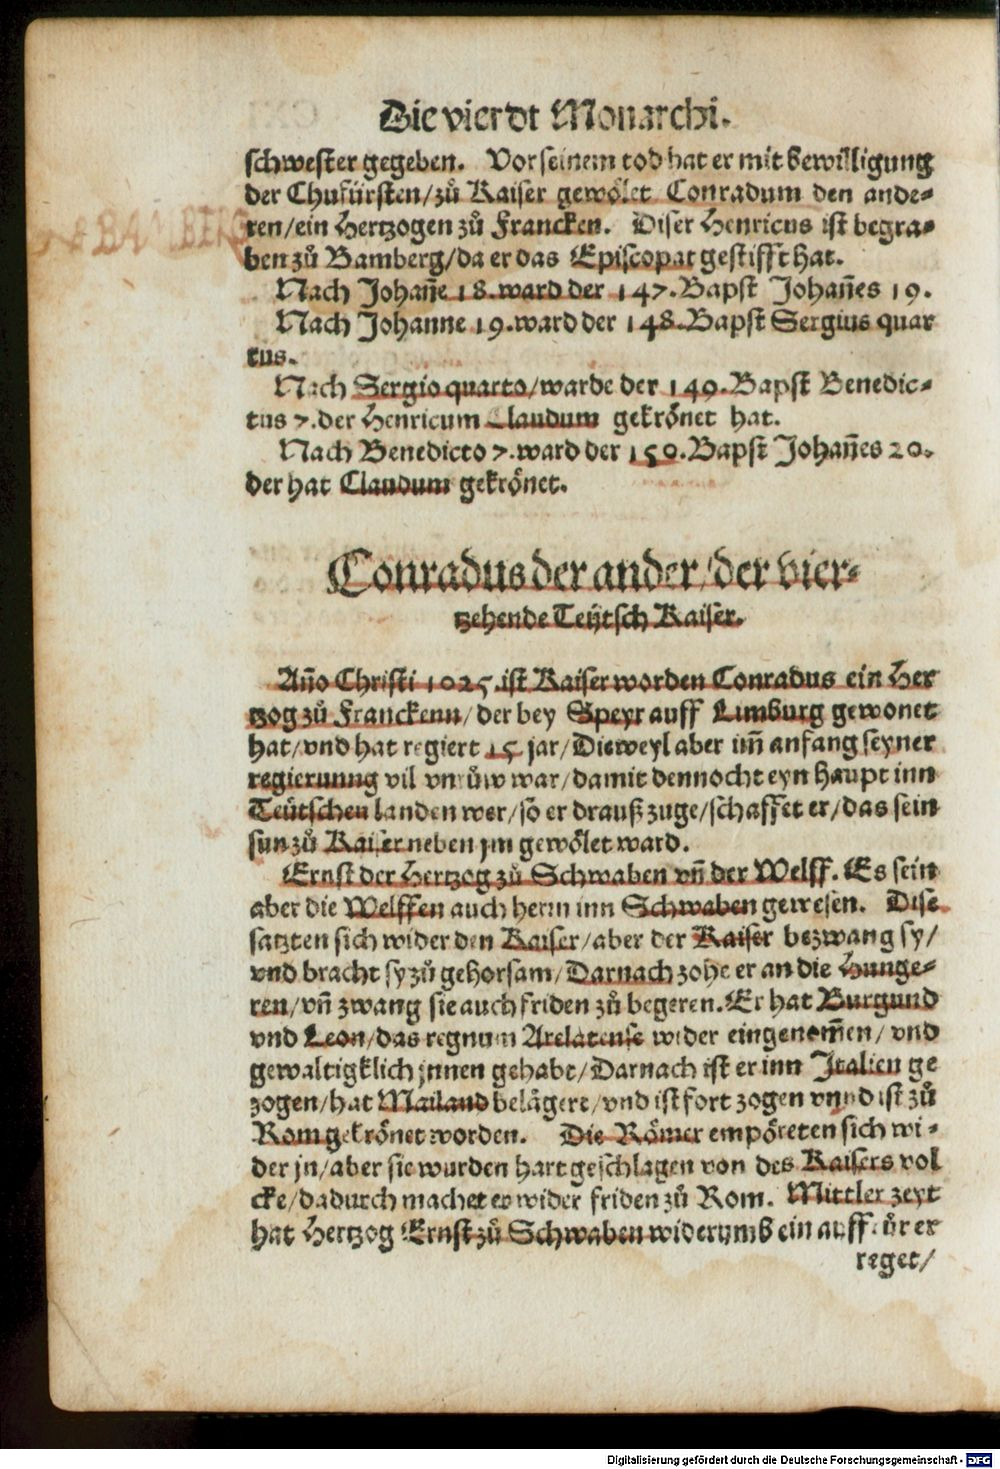 Die vierdt Monarchi.
schwester gegeben. Vor seinem tod hat er mit bewilligung
der Chufürsten/zů Kaiser gewölet Conradum den ande-
ren/ein Hertzogen zů Francken. Diser Henricus ist begra-
ben zů Bamberg/da er das Episcopat gestifft hat.
BAMBERG
Nach Johañe 18. ward der 147. Bapst Johañes 19.
Nach Johanne 19. ward der 148. Bapst Sergius quar
tus.
Nach Sergio quarto/warde der 149. Bapst Benedic-
tus 7. der Henricum Claudum gekrönet hat.
Nach Benedicto 7. ward der 150. Bapst Johañes 20.
der hat Claudum gekrönet.
Conradus der ander/der vier-
tzehende Teütsch Kaiser.
Año Christi 1025. ist Kaiser worden Conradus ein Her
tzog zů Franckenn/der bey Speyr auff Limburg gewonet
hat/vnd hat regiert 15 jar/Dieweyl aber im̄ anfang seyner
regierunng vil vnrůw war/damit dennocht eyn haupt inn
Teütschen landen wer/so er drauß zuge/schaffet er/das sein
sun zů Kaiser neben jm gewölet ward.
Ernst der Hertzog zů Schwaben vñ der Welff. Es sein
aber die Welffen auch herrn inn Schwaben gewesen. Dise
satzten sich wider den Kaiser/aber der Kaiser bezwang sy/
vnd bracht sy zů gehorsam/Darnach zohe er an die Hunge-
ren/vñ zwang sie auch friden zů begeren. Er hat Burgund
vnd Leon/das regnum Arelatense wider eingenom̄en/vnd
gewaltigklich jnnen gehabt/Darnach ist er inn Italien ge
zogen/hat Mailand belägert/vnd ist fort zogen vnnd ist zů
Rom gekrönet worden. Die Römer empöreten sich wi-
der jn/aber sie wurden hart geschlagen von des Kaisers vol
cke/dadurch machet er wider friden zů Rom. Mittler zeyt
hat Hertzog Ernst zů Schwaben widerumb ein auffrůr er
reget/
Digitalisierung gefördert durch die Deutsche Forschungsgemeinschaft - DFG